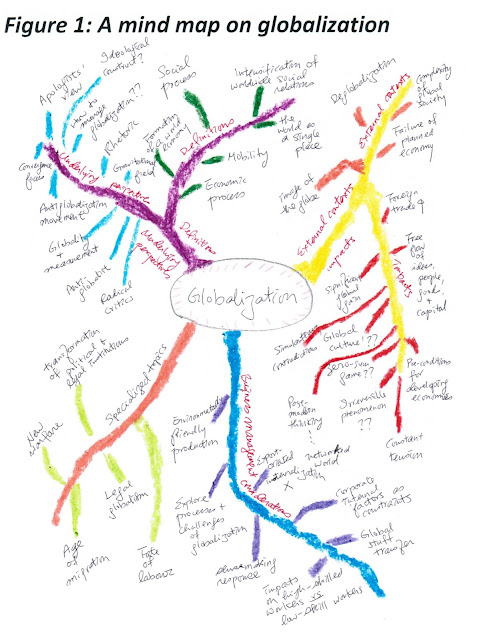 Figure 1: A mind map on globalization
Ideological
construct?
Apologists'
view
how to
manage
globalization??
Rhetoric
Convergence
forces
Gravitational
field
Underlying perspective
Antiglobalization
movement
Globality
+
measurement
Anti-
globalist
Radical
critics
Underlying
perspective
Social
process
Intensification of
worldwide social
relations
Formation
of a world
economy
Definitions
the
world as
a single
place
Mobility
Economic
process
Definitions
Deglobalization
complexity
of global
society
External contexts
Failure of
planned
economy
Image of
the globe
External contexts
impacts
Foreign
trade
Impacts
Free
flow
of
ideas,
people,
goods, +
capital
Significant
global
Simultaneous
contradictions
Global
culture???
Zero-sum
game??
Pre-conditions
for
developing
economies
Post-
modern
thinking
Irreversible
phenomenon
??
Constant
tension
Globalization
transformation
of political +
legal institutions
Specialized topics
New
warfare
Legal
globalism
Age
of
migration
Fate
of
labour
Business management
considerations
Environmentally
friendly
production
Export-
oriented
networked
world
X
Explore
processes +
challenges
of
globalization
Corporate
internal
factors as
constraints
Global
stuff
transfer
sensemaking
response
Impacts
on high-skilled
workers vs
low-skill workers